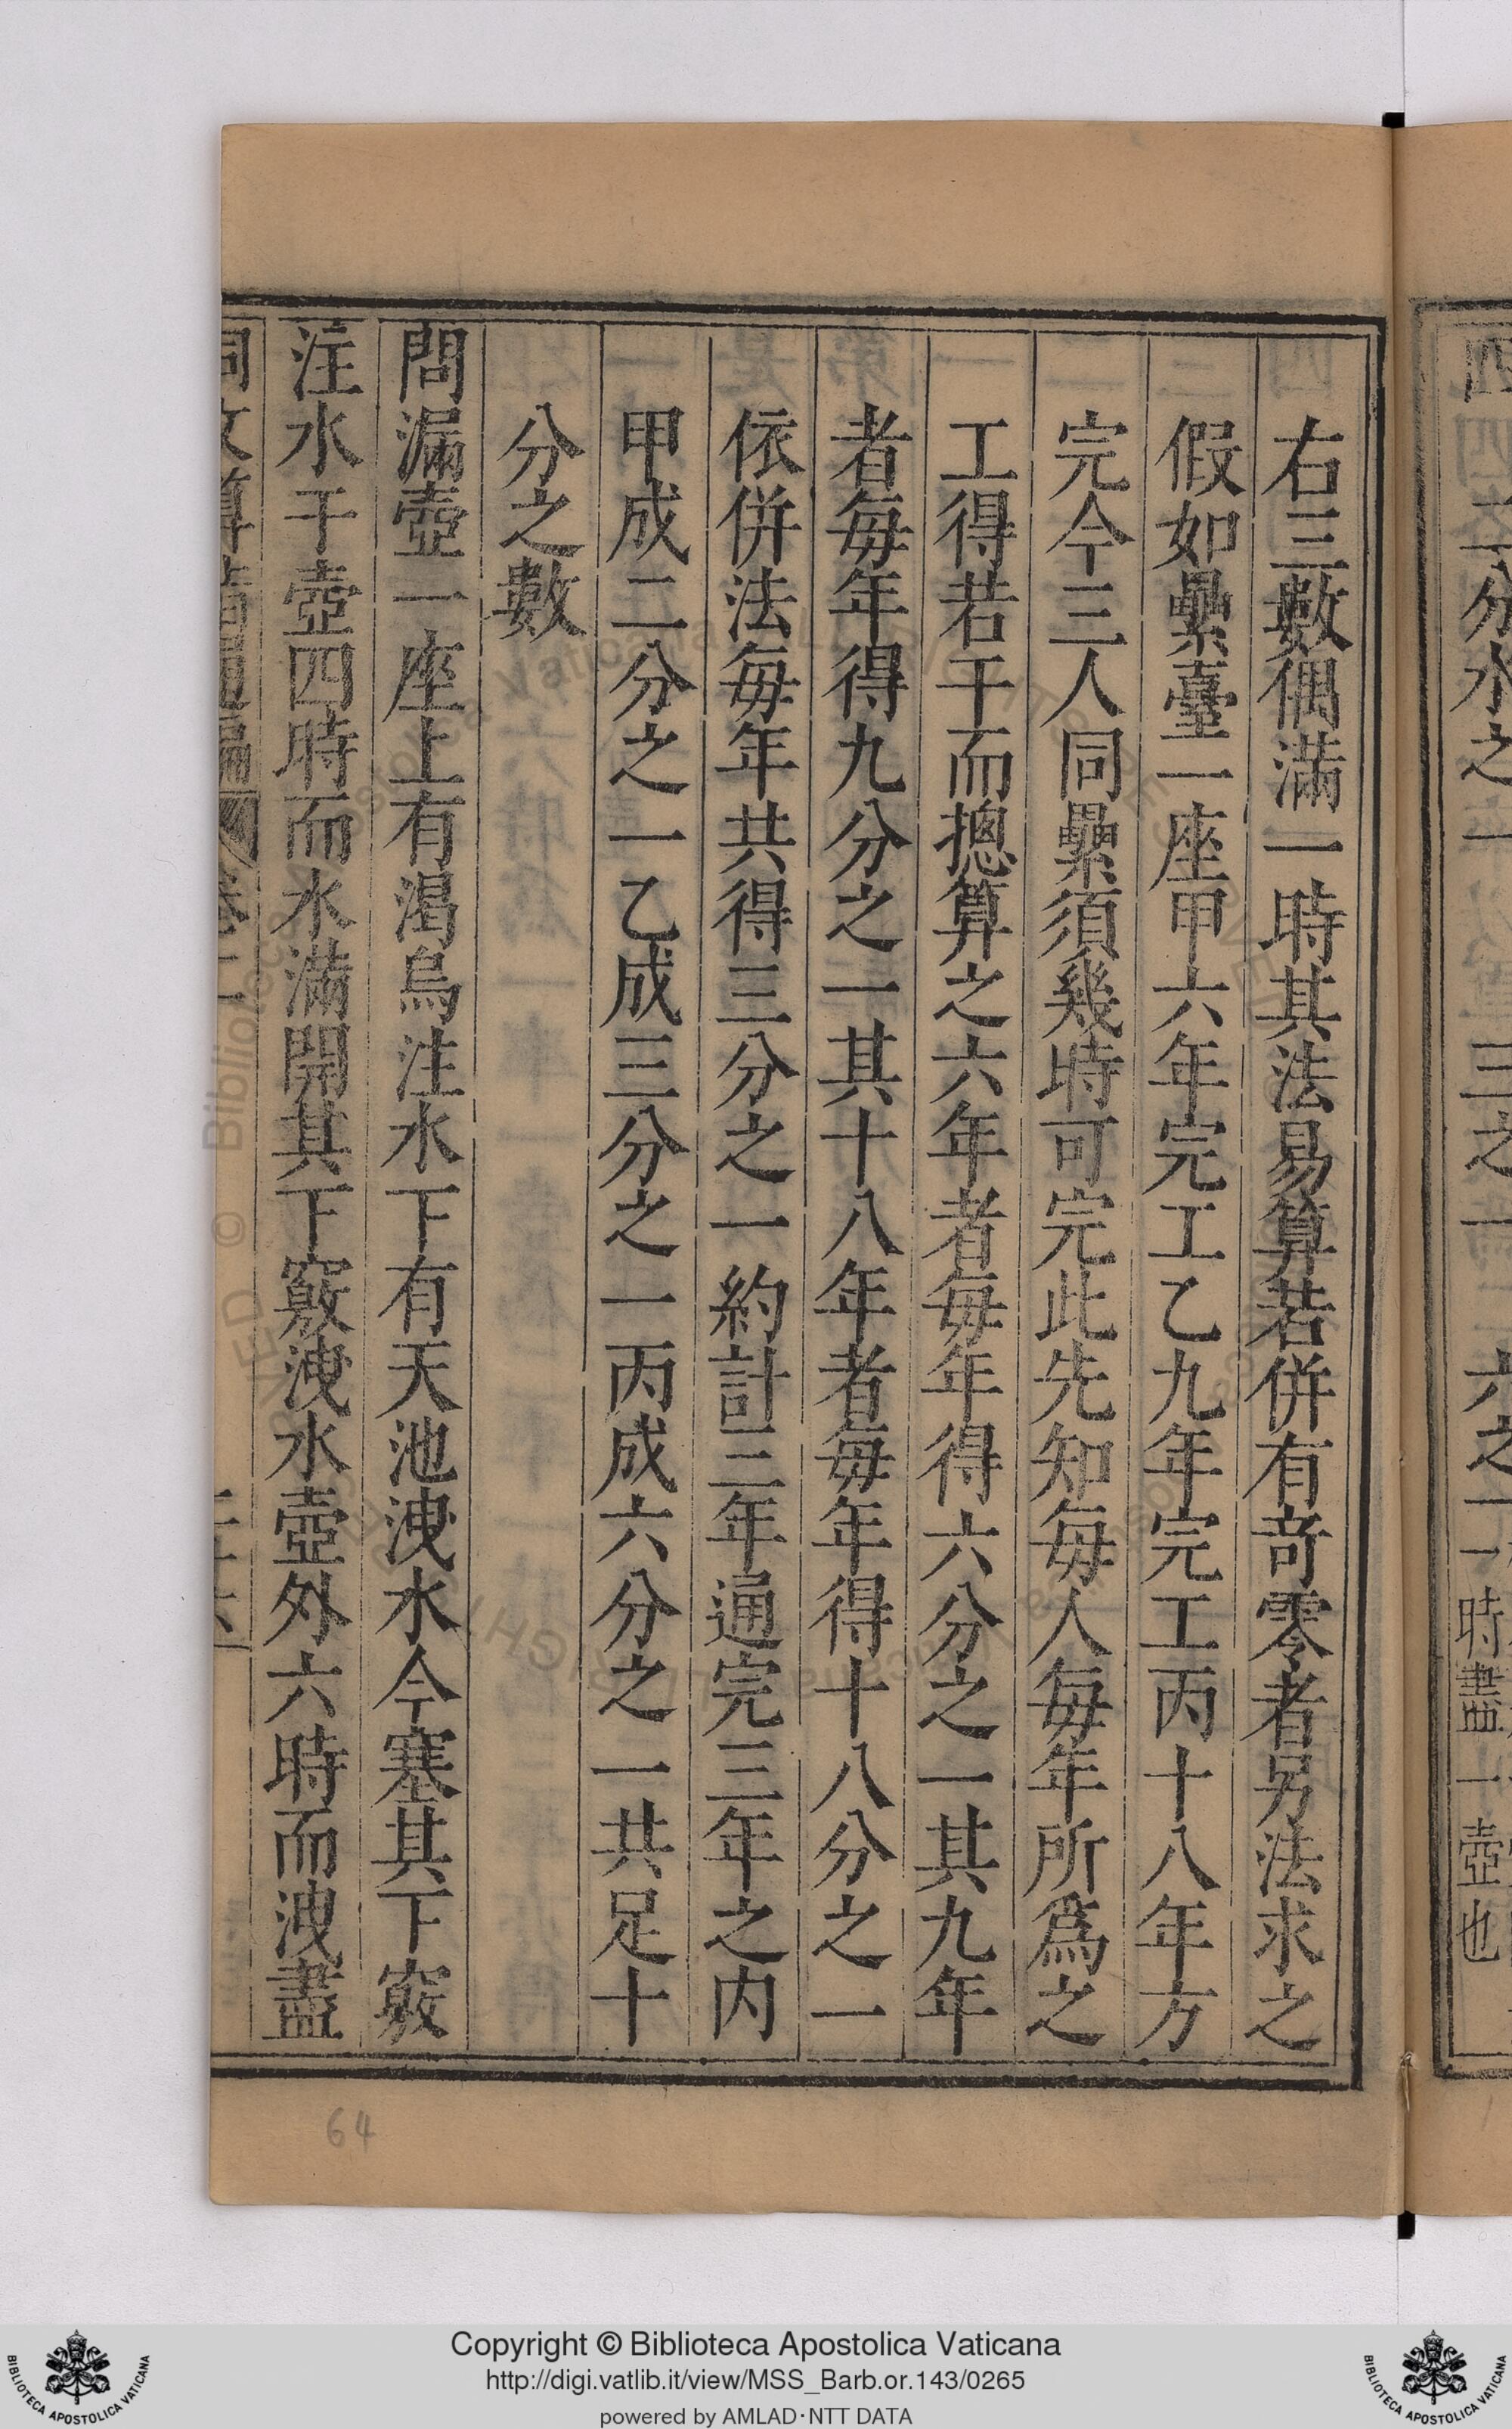 右三數偶滿一時其法易算若併有竒零者另法求之
假如纍臺一座甲六年完工乙九年完工丙十八年方
完今三人同纍須幾時可完此先知每人每年所爲之
工得若干而摠算之六年者每年得六分之一其九年
者每年得九分之一其十八年者每年得十八分之一
依併法每年共得三分之一約計三年通完三年之内
甲成二分之一乙成三分之一丙成六分之一共足十
分之數
問漏壺一座上有渴烏注水下有天池洩水今塞其下竅
注水于壺四時而水滿開其下竅洩水壺外六時而洩盡
64
Copyright © Biblioteca Apostolica Vaticana
http://digi.vatlib.it/view/MSS_Barb.or.143/0265
powered by AMLAD·NTT DATA
BIBLIOTECA APOSTOLICA VATICANA
BIBLIOTECA APOSTOLICA VATICANA